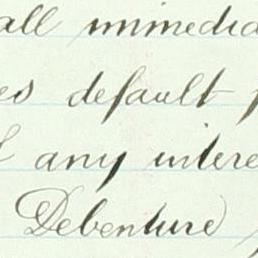 all immedia
es default
any intere
Debenture